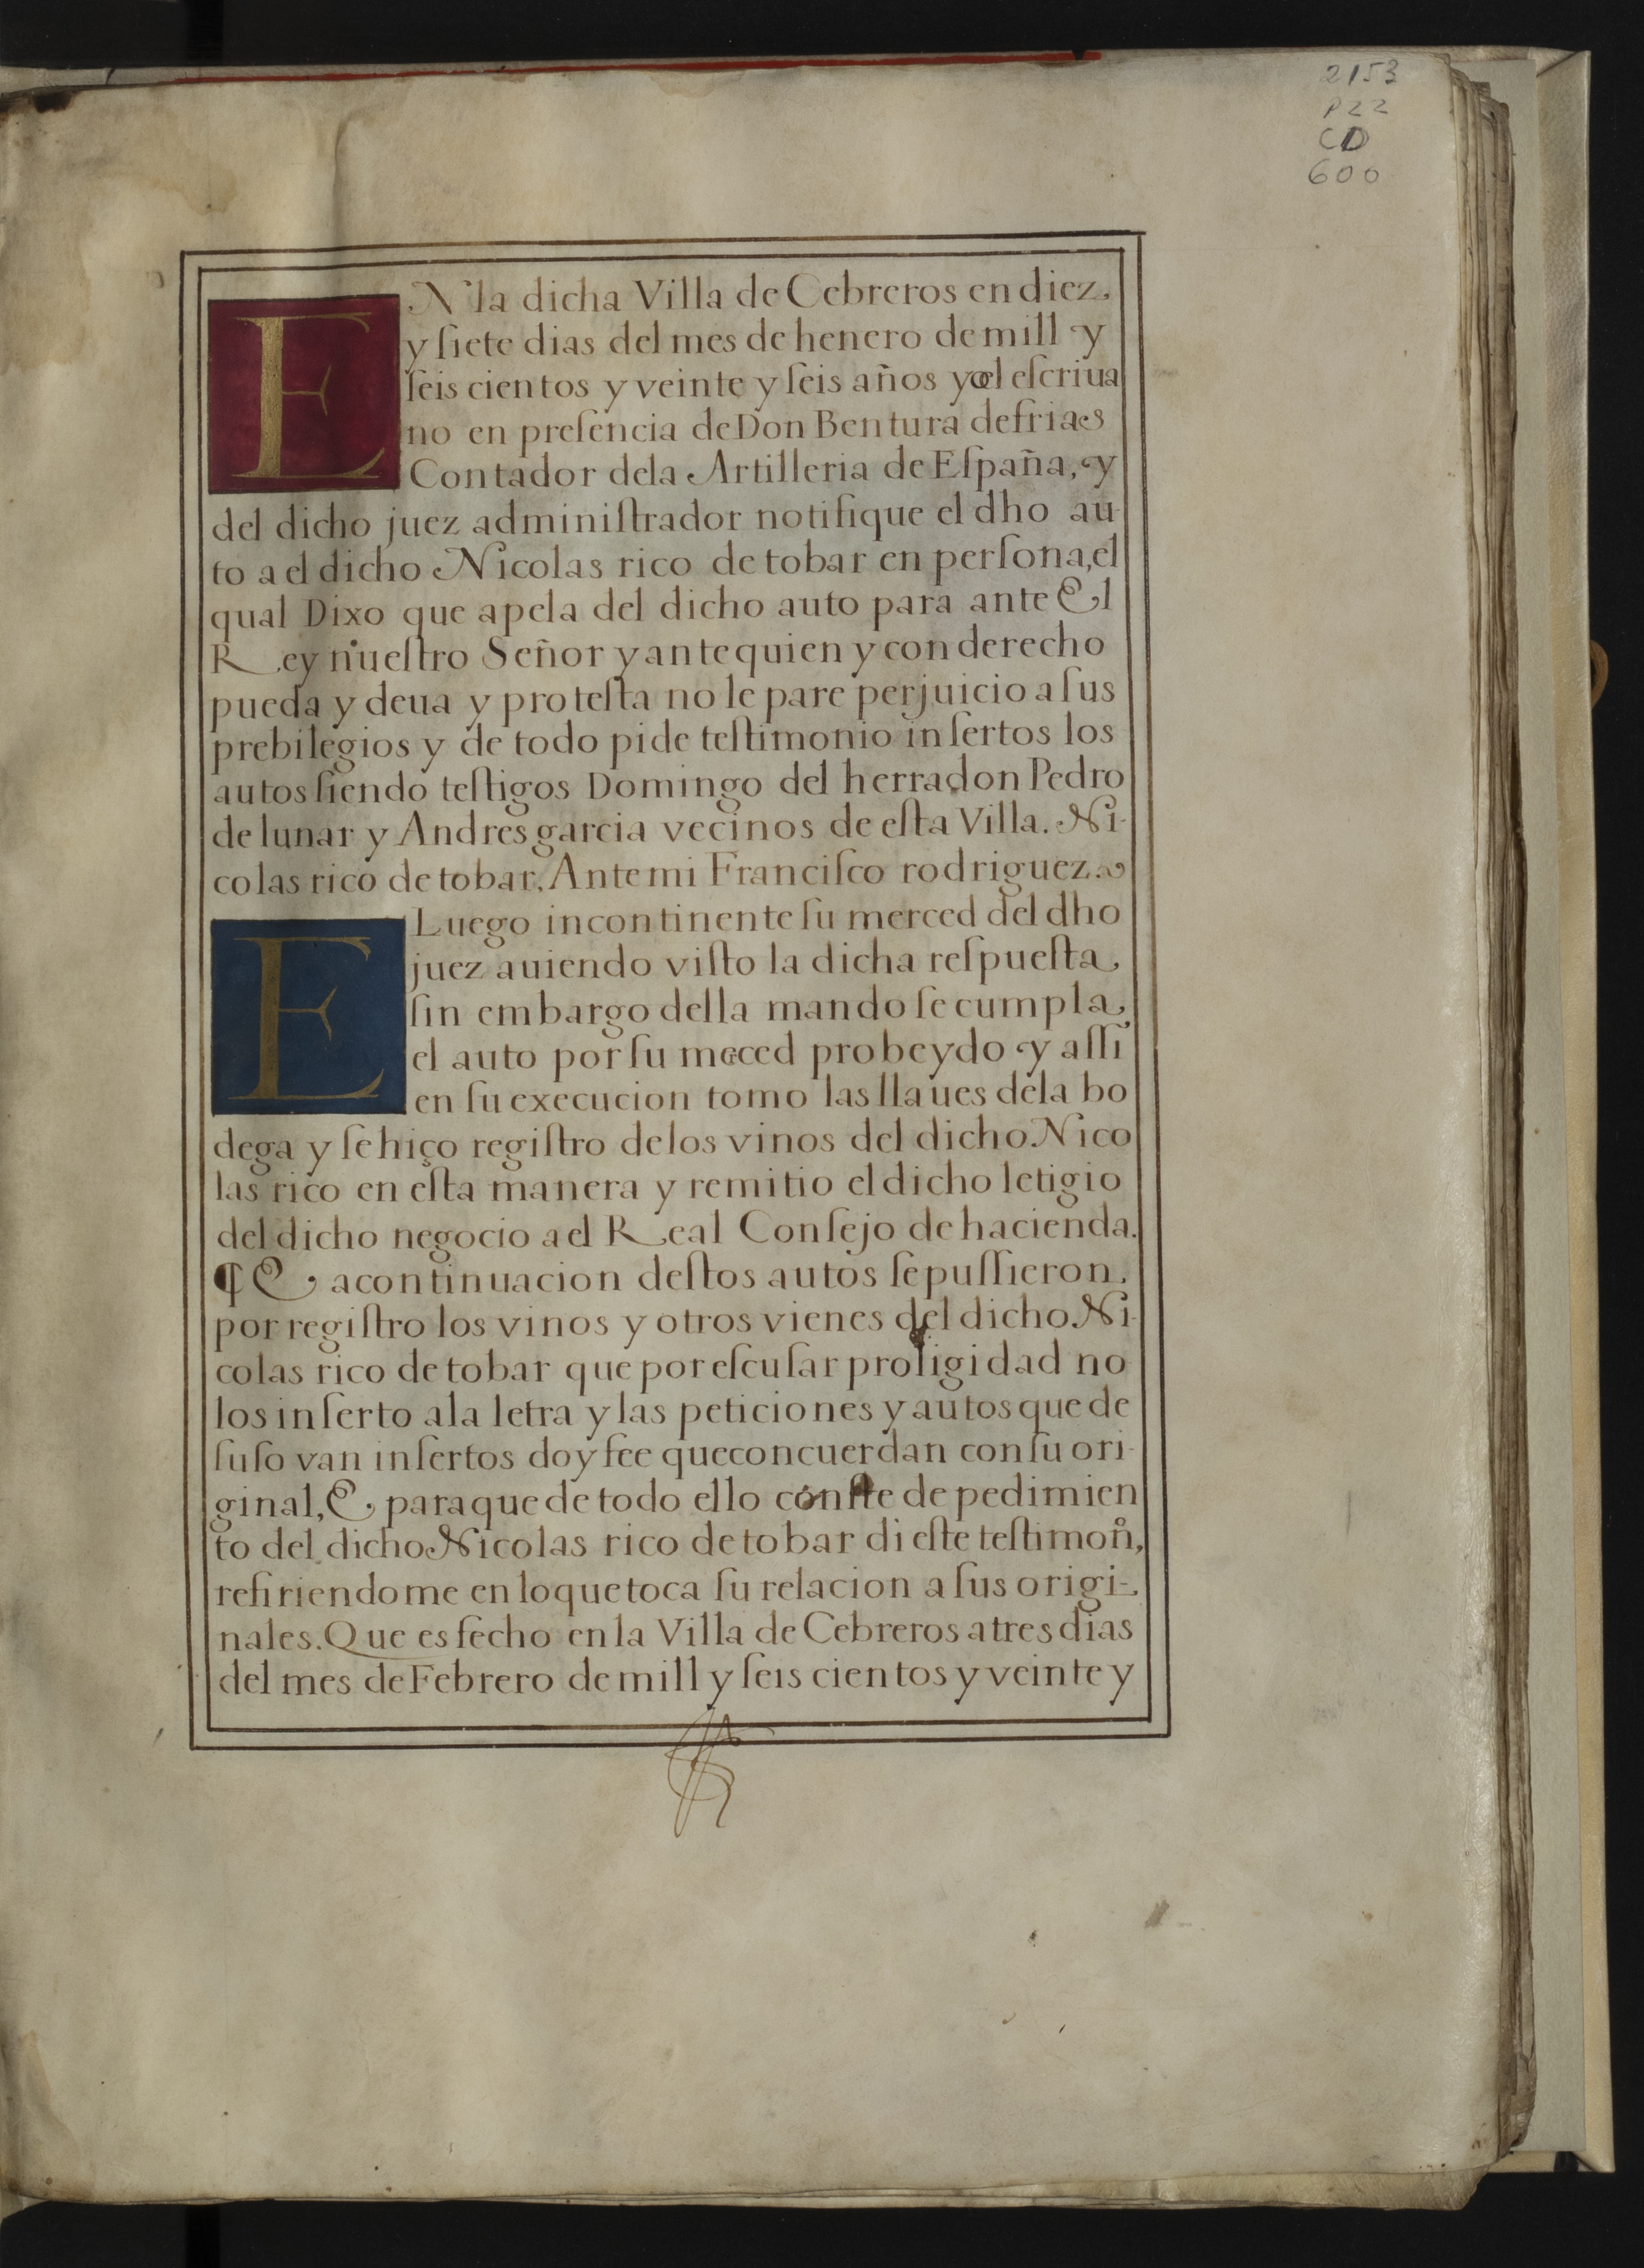 2153
P22
CD
600
EN la dicha Villa de Cebreros en diez,
y ſiete dias del mes de henero de mill y
ſeis cientos y veinte y ſeis años yo el eſcriua
no en preſencia de Don Bentura de frias
Contador dela Artilleria de Eſpaña, y
del dicho juez adminiſtrador notifique el dho au-
to a el dicho Nicolas rico de tobar en perſona, el
qual Dixo que apela del dicho auto para ante El
Rey nueſtro Señor y ante quien y con derecho
pueda y deua y proteſta no le pare perjuicio a ſus
prebilegios y de todo pide teſtimonio inſertos los
autos ſiendo teſtigos Domingo del herradon Pedro
de lunar y Andres garcia vecinos de eſta Villa. Ni-
colas rico de tobar, Ante mi Franciſco rodriguez.
E Luego incontinente ſu merced del dho
juez auiendo viſto la dicha reſpueſta,
ſin embargo della mando ſe cumpla,
el auto por ſu merced probeydo y aſſi
en ſu execucion tomo las llaues dela bo
dega y ſe hiço regiſtro de los vinos del dicho Nico
las rico en eſta manera y remitio el dicho letigio
del dicho negocio a el Real Conſejo de hacienda.
¶ E, a continuacion deſtos autos ſe puſſieron,
por regiſtro los vinos y otros vienes del dicho Ni-
colas rico de tobar que por eſcuſar proligidad no
los inſerto ala letra y las peticiones y autos que de
ſuſo van inſertos doy fee que concuerdan con ſu ori-
ginal, E, para que de todo ello conſte de pedimien
to del dicho Nicolas rico de tobar di eſte teſtimoñº,
refiriendome en lo que toca ſu relacion a ſus origi-
nales. Que es fecho en la Villa de Cebreros a tres dias
del mes de Febrero de mill y ſeis cientos y veinte y